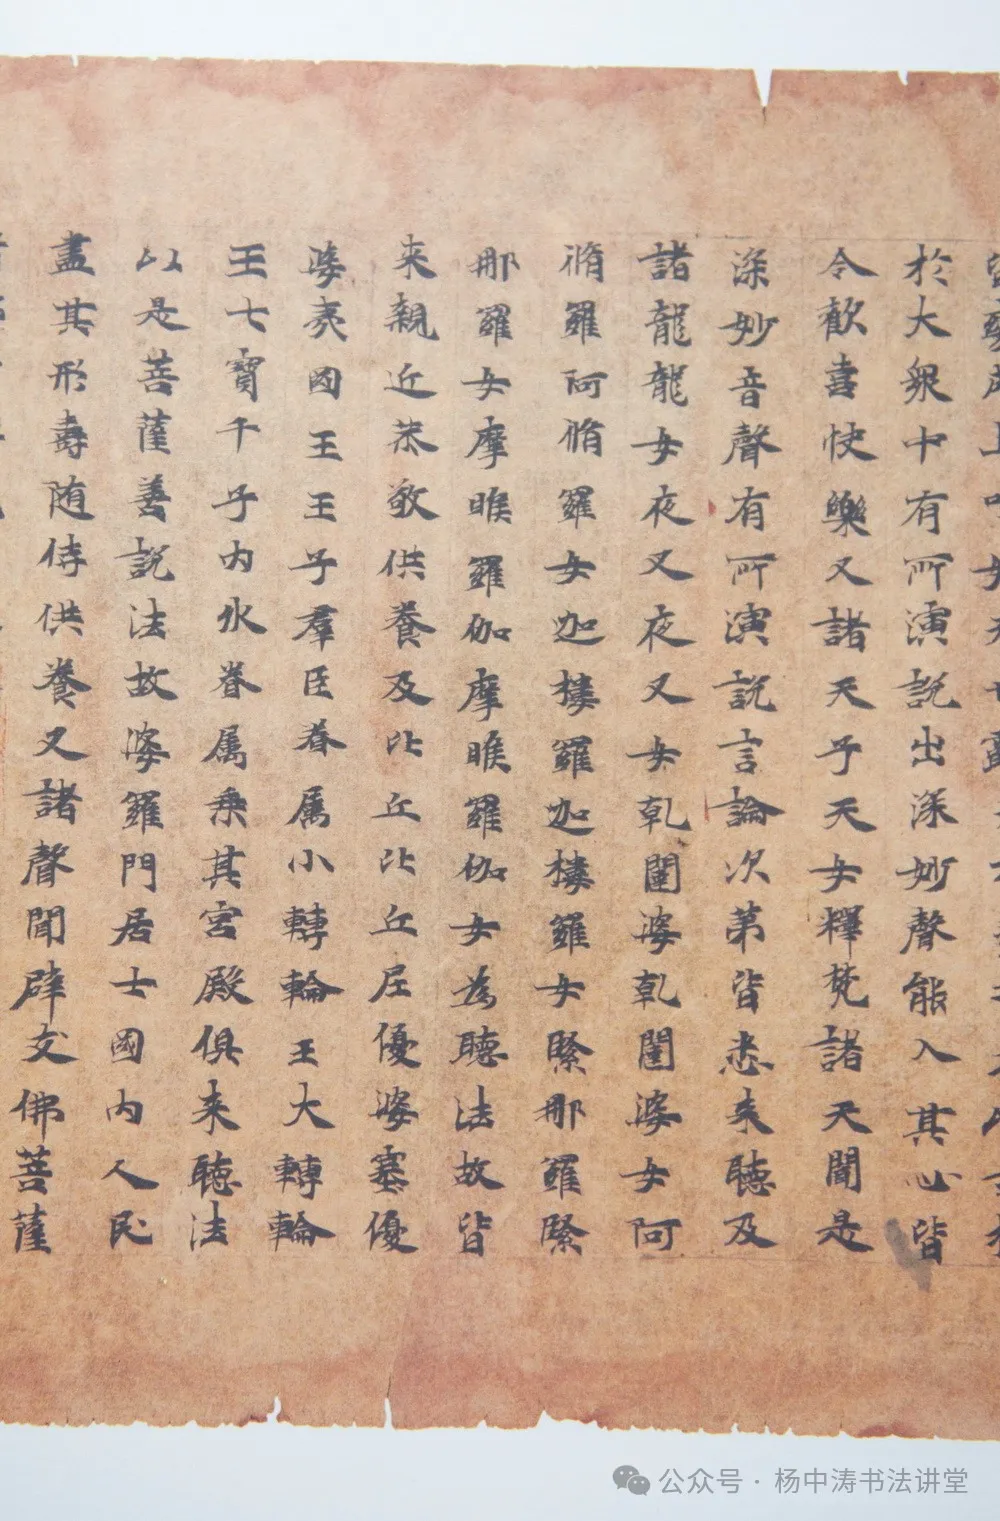 於大衆中有所演說出深妙聲能入其心皆
令歡喜快樂又諸天子天女釋梵諸天聞是
深妙音聲有所演說言論次第皆悉来聽及
諸龍龍女夜叉夜叉女乹闥婆乹闥婆女阿
脩羅阿脩羅女迦樓羅迦樓羅女緊那羅緊
那羅女摩睺羅伽摩睺羅伽女為聽法故皆
来親近恭敬供養及比丘比丘尼優婆塞優
婆夷國王王子羣臣眷属小轉輪王大轉輪
王七寶千子内外眷属乗其宮殿俱来聽法
以是菩薩善說法故婆羅門居士國内人民
盡其形壽随侍供養又諸聲聞辟支佛菩薩
公众号·杨中涛书法讲堂